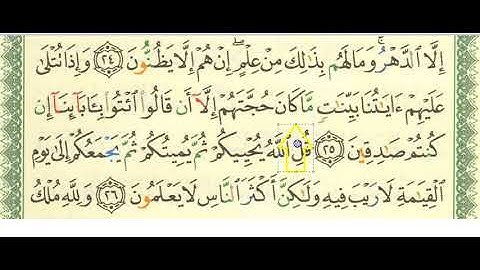 إِلَّا ٱلدَّهْرُ ۚ وَمَا لَهُم بِذَٰلِكَ مِنْ عِلْمٍ ۖ إِنْ هُمْ إِلَّا يَظُنُّونَ ٢٤ وَإِذَا تُتْلَىٰ
عَلَيْهِمْ ءَايَٰتُنَا بَيِّنَٰتٍ مَّا كَانَ حُجَّتَهُمْ إِلَّآ أَن قَالُوا۟ ٱئْتُوا۟ بِـَٔابَآئِنَآ إِن
كُنتُمْ صَٰدِقِينَ ٢٥ قُلِ ٱللَّهُ يُحْيِيكُمْ ثُمَّ يُمِيتُكُمْ ثُمَّ يَجْمَعُكُمْ إِلَىٰ يَوْمِ
ٱلْقِيَٰمَةِ لَا رَيْبَ فِيهِ وَلَٰكِنَّ أَكْثَرَ ٱلنَّاسِ لَا يَعْلَمُونَ ٢٦ وَلِلَّهِ مُلْكُ